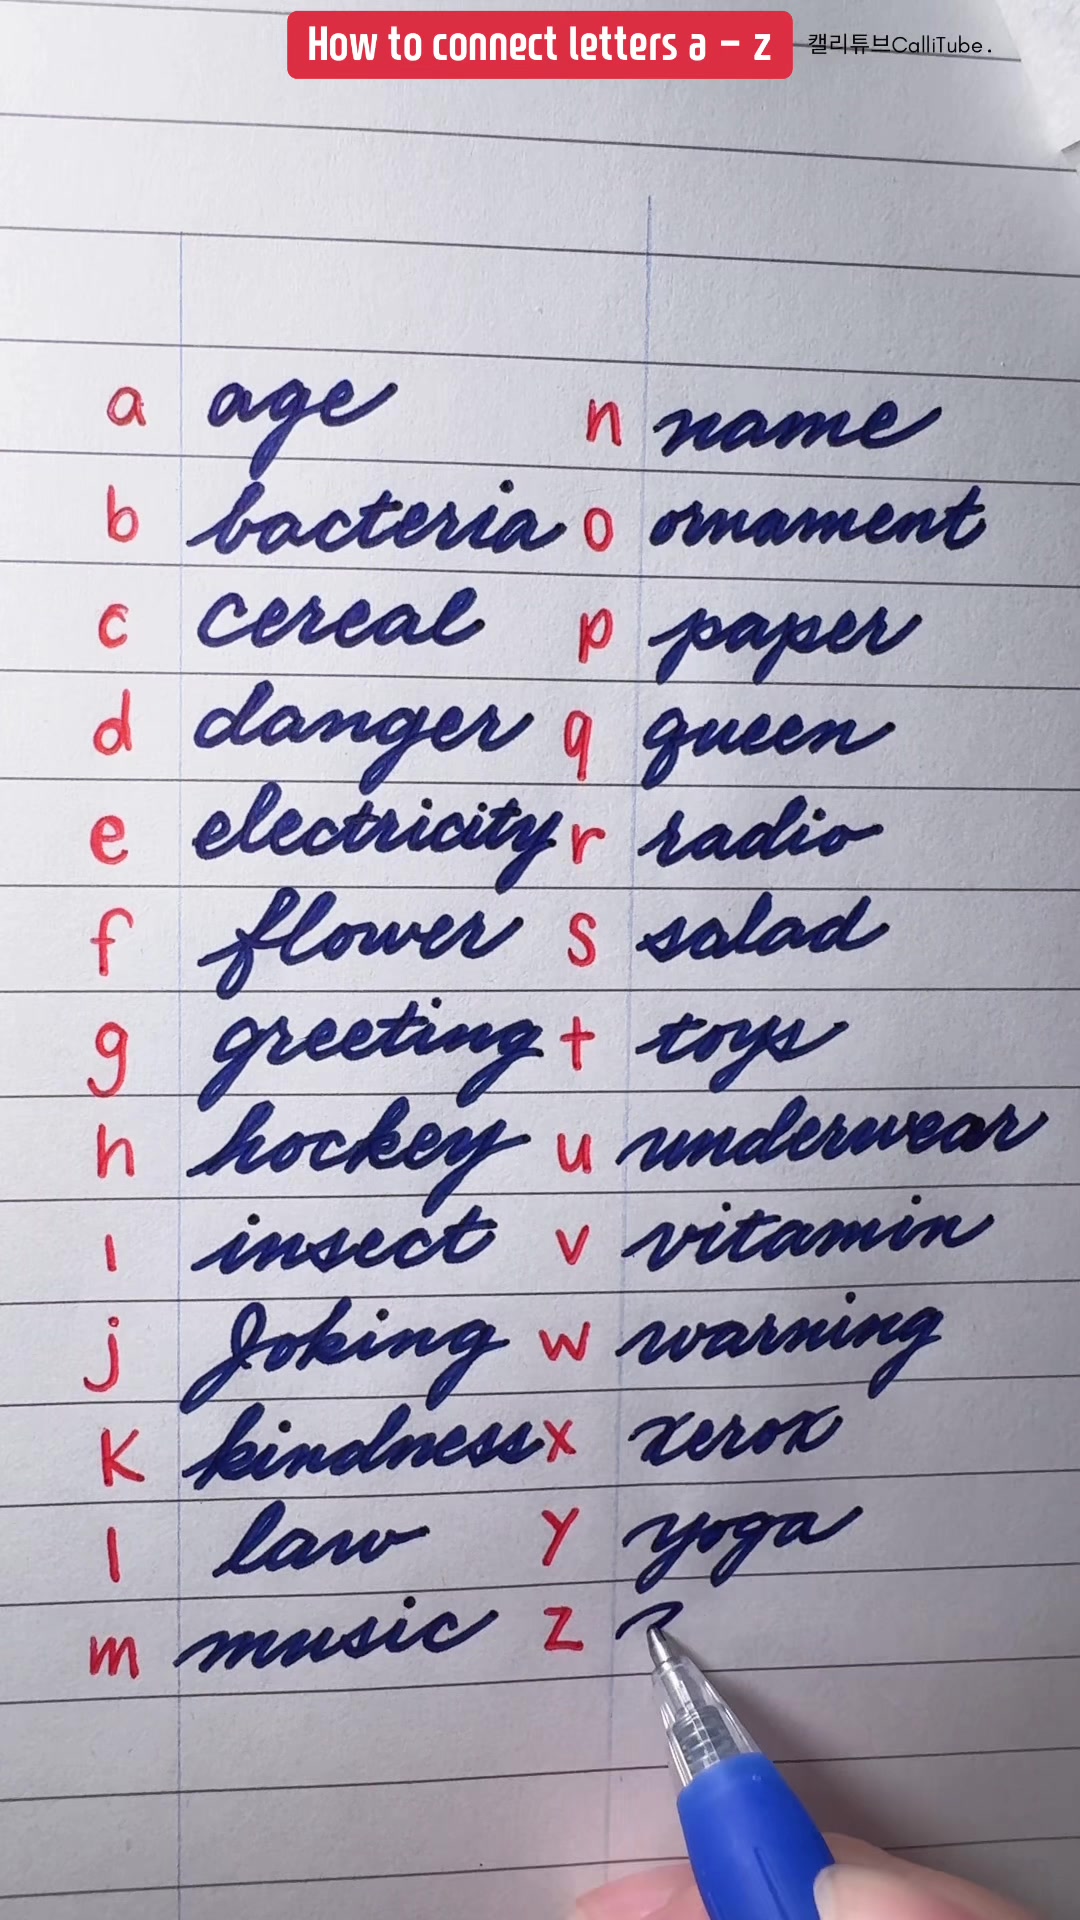 How to connect letters a – z 캘리튜브CalliTube.
a age n name
b bacteria o ornament
c cereal p paper
d danger q queen
e electricity r radio
f flower s salad
g greeting t toys
h hockey u underwear
i insect v vitamin
j Joking w warning
K kindness x xerox
l law y yoga
m music z